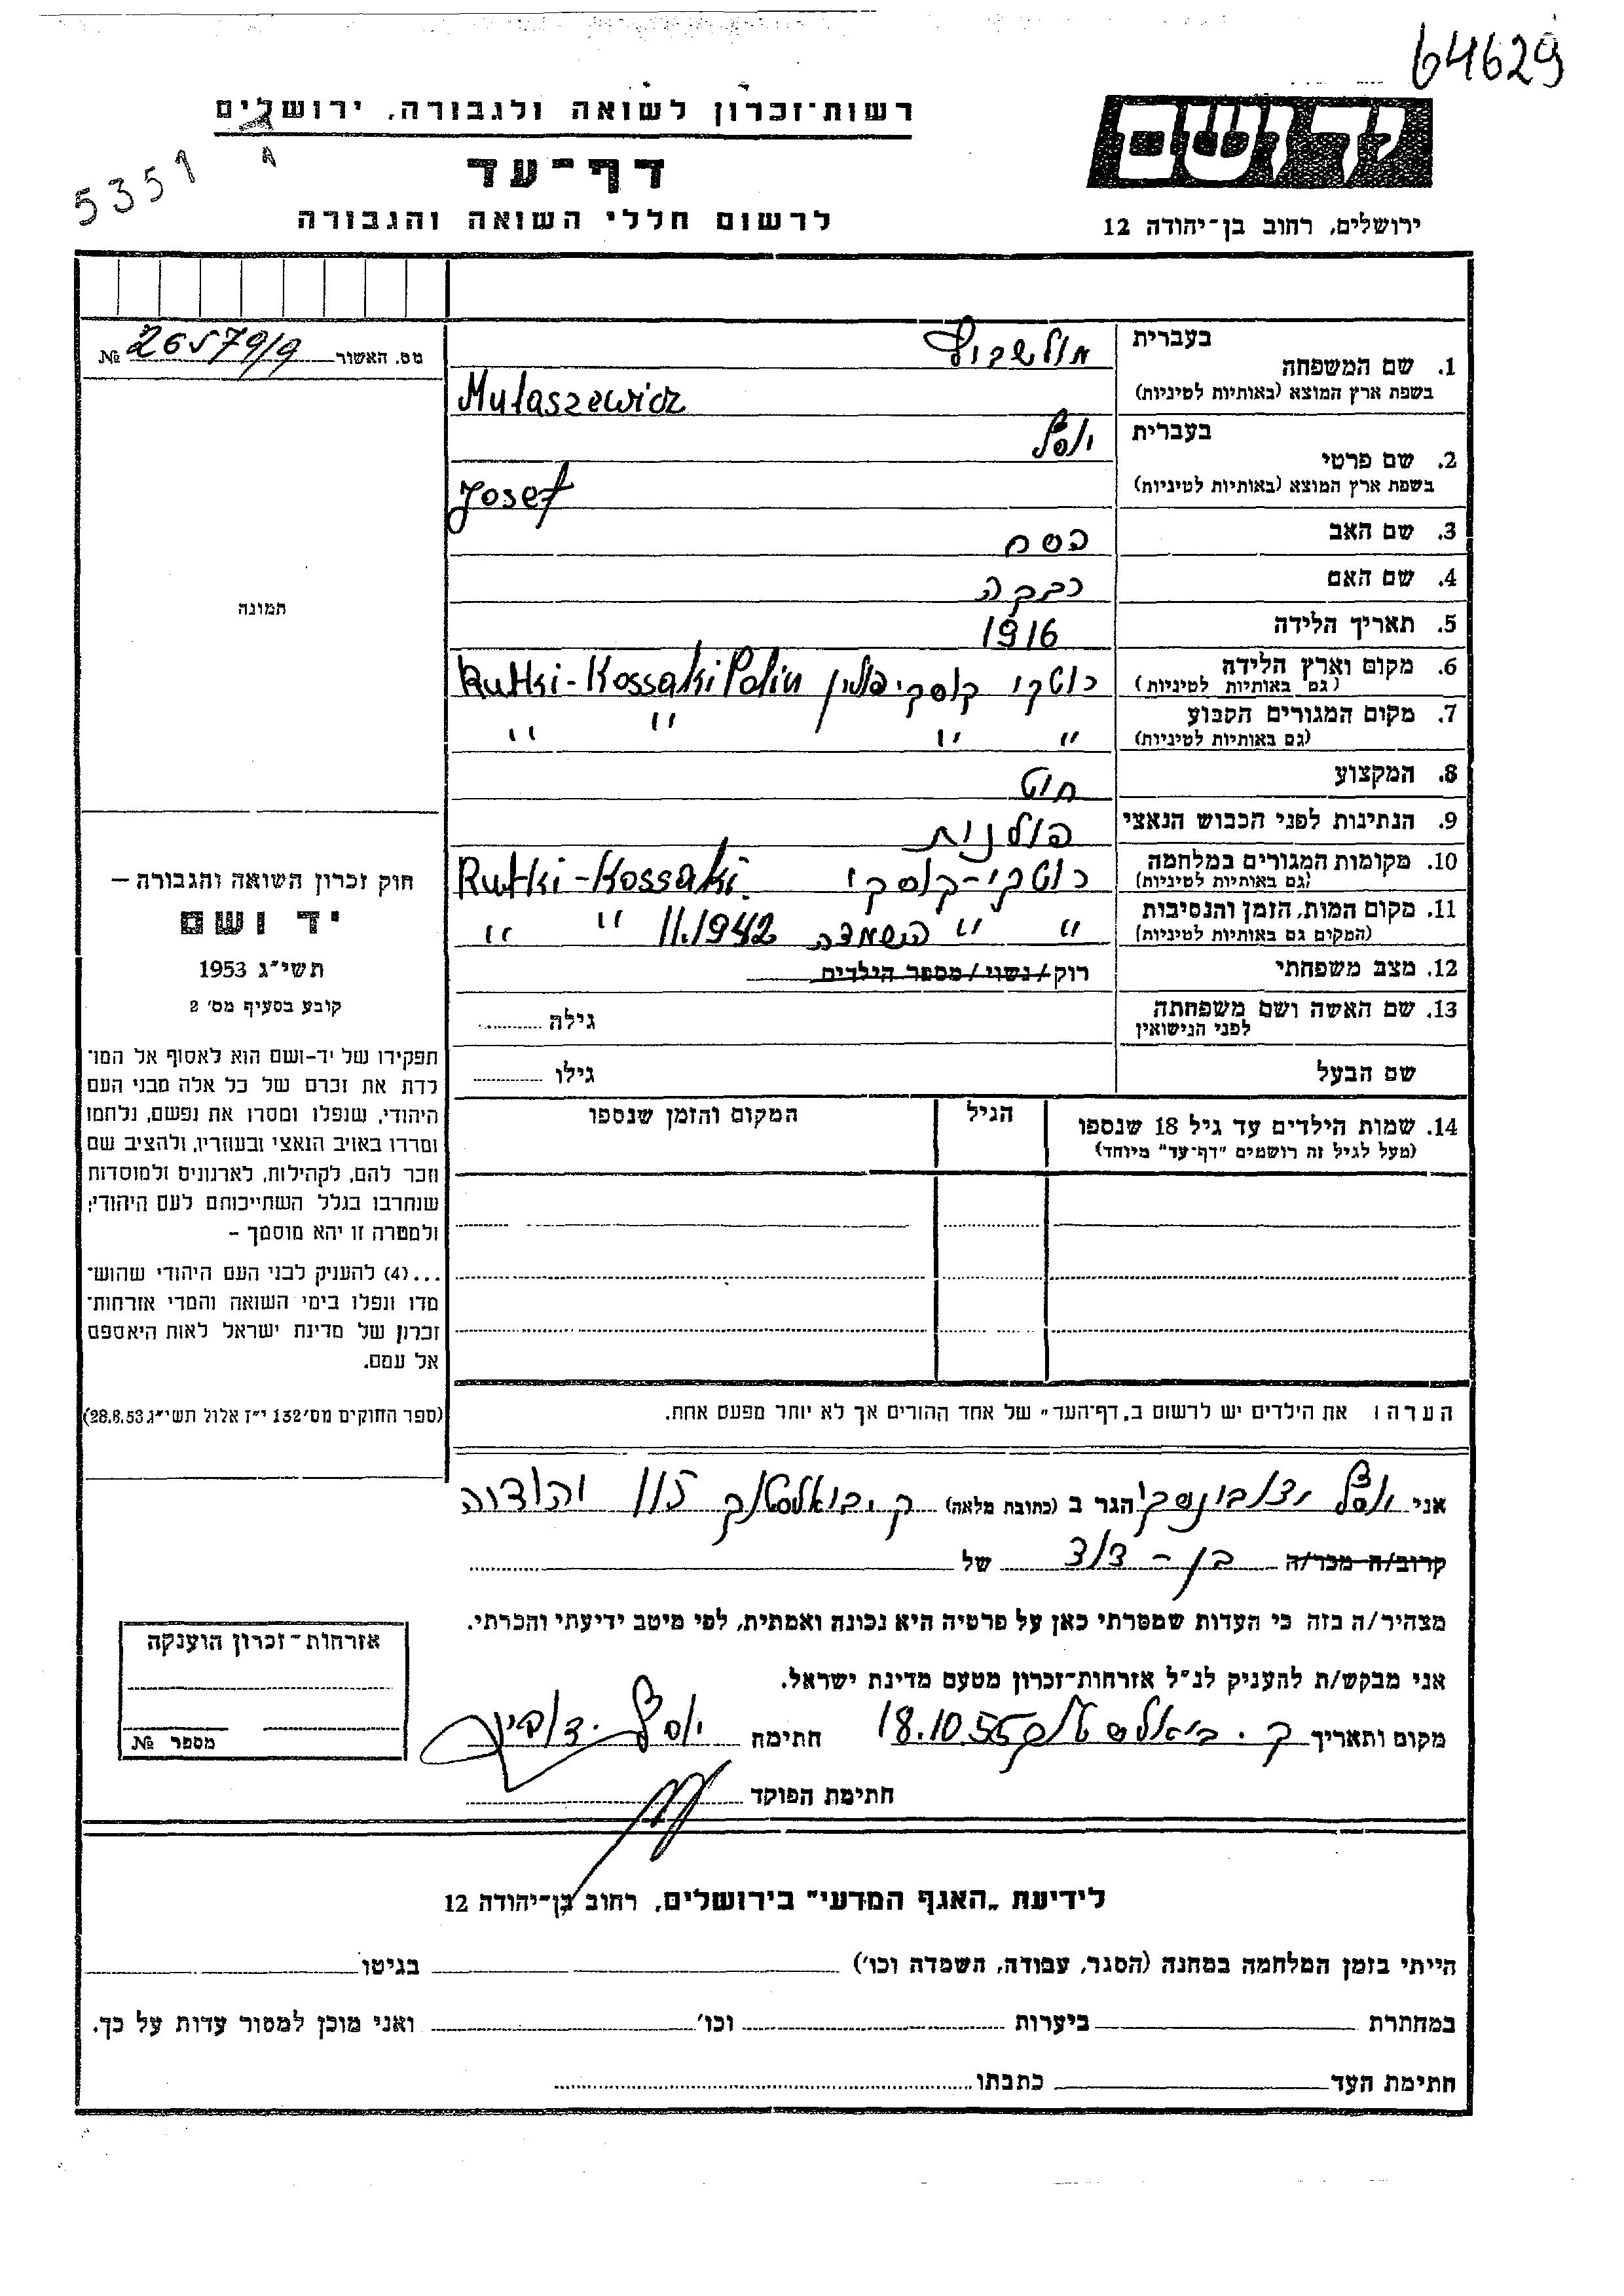 64629
רשות־זכרון לשואה ולגבורה, ירושלים
יד ושם
5351
דף־עד
לרשום חללי השואה והגבורה
ירושלים, רחוב בן־יהודה 12
בעברית
1. שם המשפחה
בשפת ארץ המוצא (באותיות לטיניות)
Mulaszewicz
מס. האשור 26579/9 №
בעברית
2. שם פרטי
בשפת ארץ המוצא (באותיות לטיניות)
יוסף
Josef
3. שם האב פסח
4. שם האם רבקה
5. תאריך הלידה 1916
6. מקום וארץ הלידה
(גם באותיות לטיניות)
רוטקי קוסקי פולין Rutki-Kossaki Polin
7. מקום המגורים הקבוע
(גם באותיות לטיניות)
" " " "
8. המקצוע חיט
9. הנתינות לפני הכבוש הנאצי פולנית
10. מקומות המגורים במלחמה
(גם באותיות לטיניות)
רוטקי-קוסקי Rutki-Kossaki.
11. מקום המות, הזמן והנסיבות
(המקום גם באותיות לטיניות)
" " הושמדה 11.1942 " "
12. מצב משפחתי רוק/נשוי/מספר הילדים
13. שם האשה ושם משפחתה
לפני הנישואין
גילה
שם הבעל גילו
14. שמות הילדים עד גיל 18 שנספו
(מעל לגיל זה רושמים "דף־עד" מיוחד)
הגיל
המקום והזמן שנספו
הערה: את הילדים יש לרשום ב„דף־העד" של אחד ההורים אך לא יותר מפעם אחת.
תמונה
חוק זכרון השואה והגבורה —
יד ושם
תשי"ג 1953
קובע בסעיף מס' 2
תפקידו של יד-ושם הוא לאסוף אל המו־
לדת את זכרם של כל אלה מבני העם
היהודי, שנפלו ומסרו את נפשם, נלחמו
ומרדו באויב הנאצי ובעוזריו, ולהציב שם
וזכר להם, לקהילות, לארגונים ולמוסדות
שנחרבו בגלל השתייכותם לעם היהודי;
ולמטרה זו יהא מוסמך -
...(4) להעניק לבני העם היהודי שהוש־
מדו ונפלו בימי השואה והמרי אזרחות־
זכרון של מדינת ישראל לאות היאספם
אל עמם.
(ספר החוקים מס' 132 י"ז אלול תשי"ג 28.8.53)
אני יוסף הגר ב (כתובת מלאה) ק. ביאליסטוק 115 יהודיה
קרוב/ה מכר/ה בן - דוד של
מצהיר/ה בזה כי העדות שמסרתי כאן על פרטיה היא נכונה ואמתית, לפי מיטב ידיעתי והכרתי.
אני מבקש/ת להעניק לנ"ל אזרחות־זכרון מטעם מדינת ישראל.
מקום ותאריך ק. ביאליסטוק 18.10.55 חתימה יוסף
חתימת הפוקד
אזרחות־זכרון הוענקה
מספר №
לידיעת „האגף המדעי" בירושלים, רחוב בן־יהודה 12
הייתי בזמן המלחמה במחנה (הסגר, עבודה, השמדה וכו') בגיטו
במחתרת ביערות וכו' ואני מוכן למסור עדות על כך.
חתימת העד כתבתו